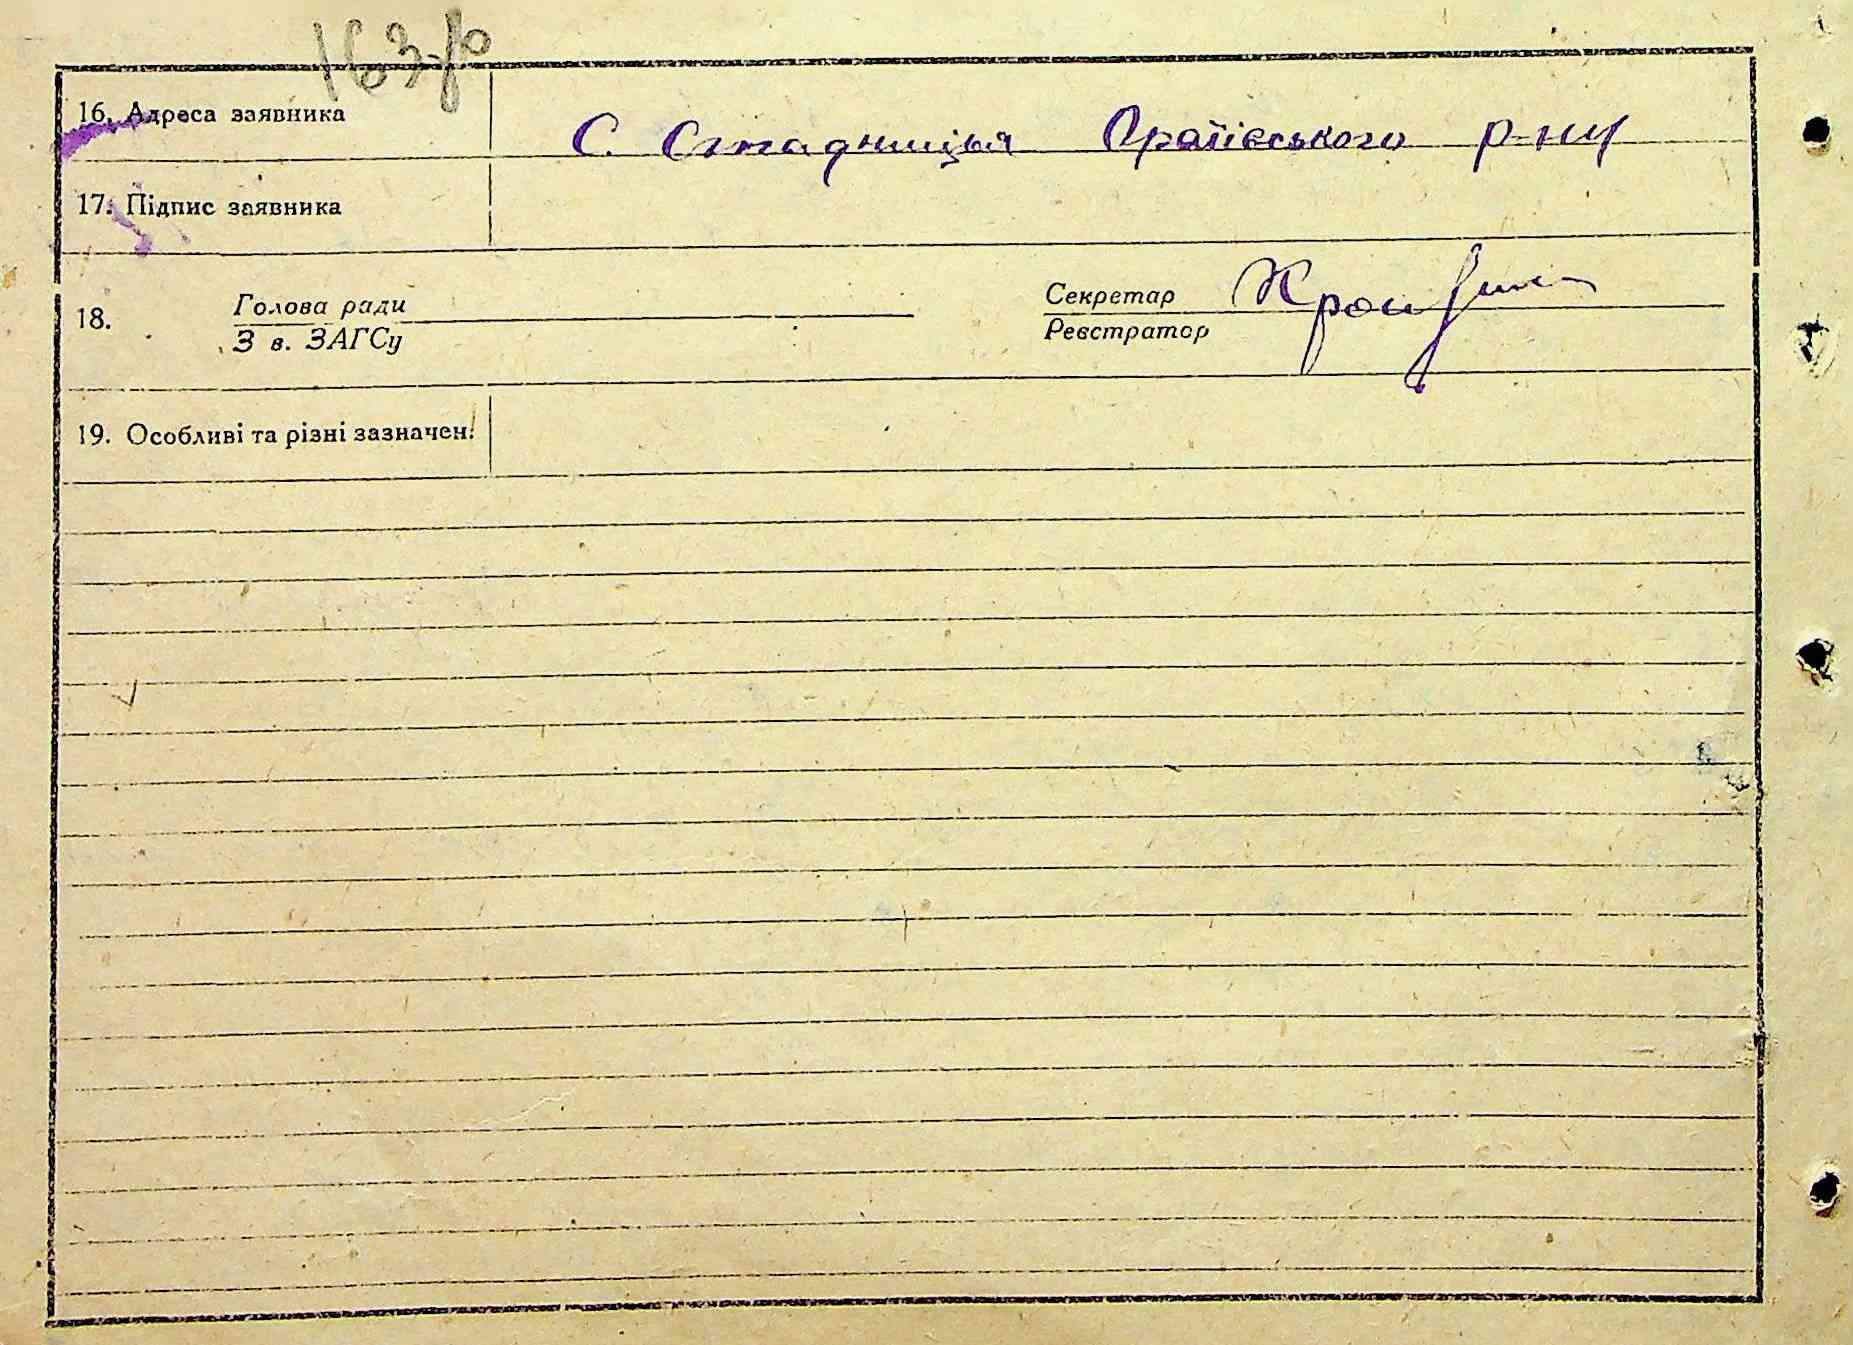 163
16. Адреса заявника С. Стадниця Оратівського р-ну
17. Підпис заявника
18. Голова ради Секретар
З в. ЗАГСу Реєстратор
19. Особливі та різні зазначен.